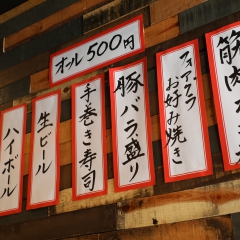 オール500円
筋肉
フォアグラ
お好み焼き
豚バラ盛り
手巻き寿司
生ビール
ハイボール